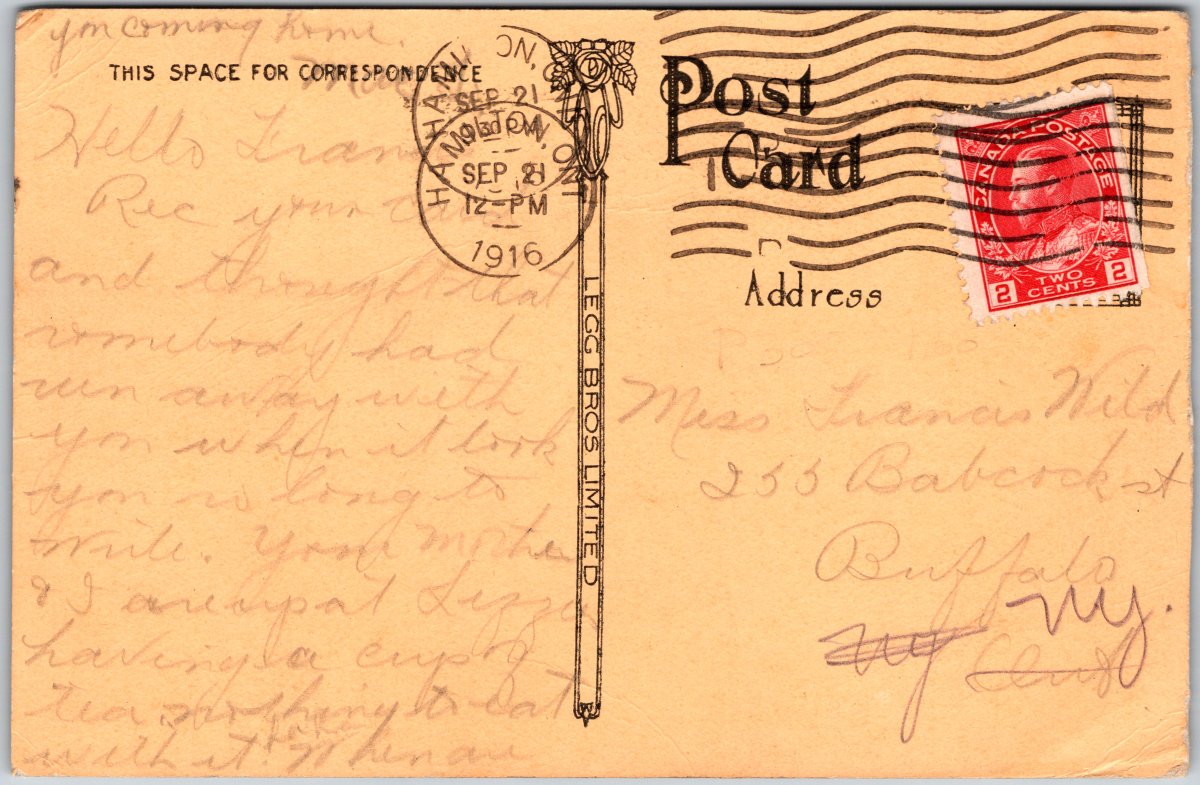 you coming home.
THIS SPACE FOR CORRESPONDENCE
Hello Fran
Rec your card
and thought that
somebody had
run away with
you when it took
you so long to
write. Your mother
& I are up at Lizza
having a cup of
tea nothing to eat
with it. When are
HAMILTON, ONT
SEP 21
9 30 PM
HAMILTON, ONT
SEP 21
12-PM
1916
LEGG BROS LIMITED
Post
Card
CANADA POSTAGE
2 TWO CENTS 2
Address
Miss Francis Wild
255 Babcock st
Buffalo
NY.
NY
Ont